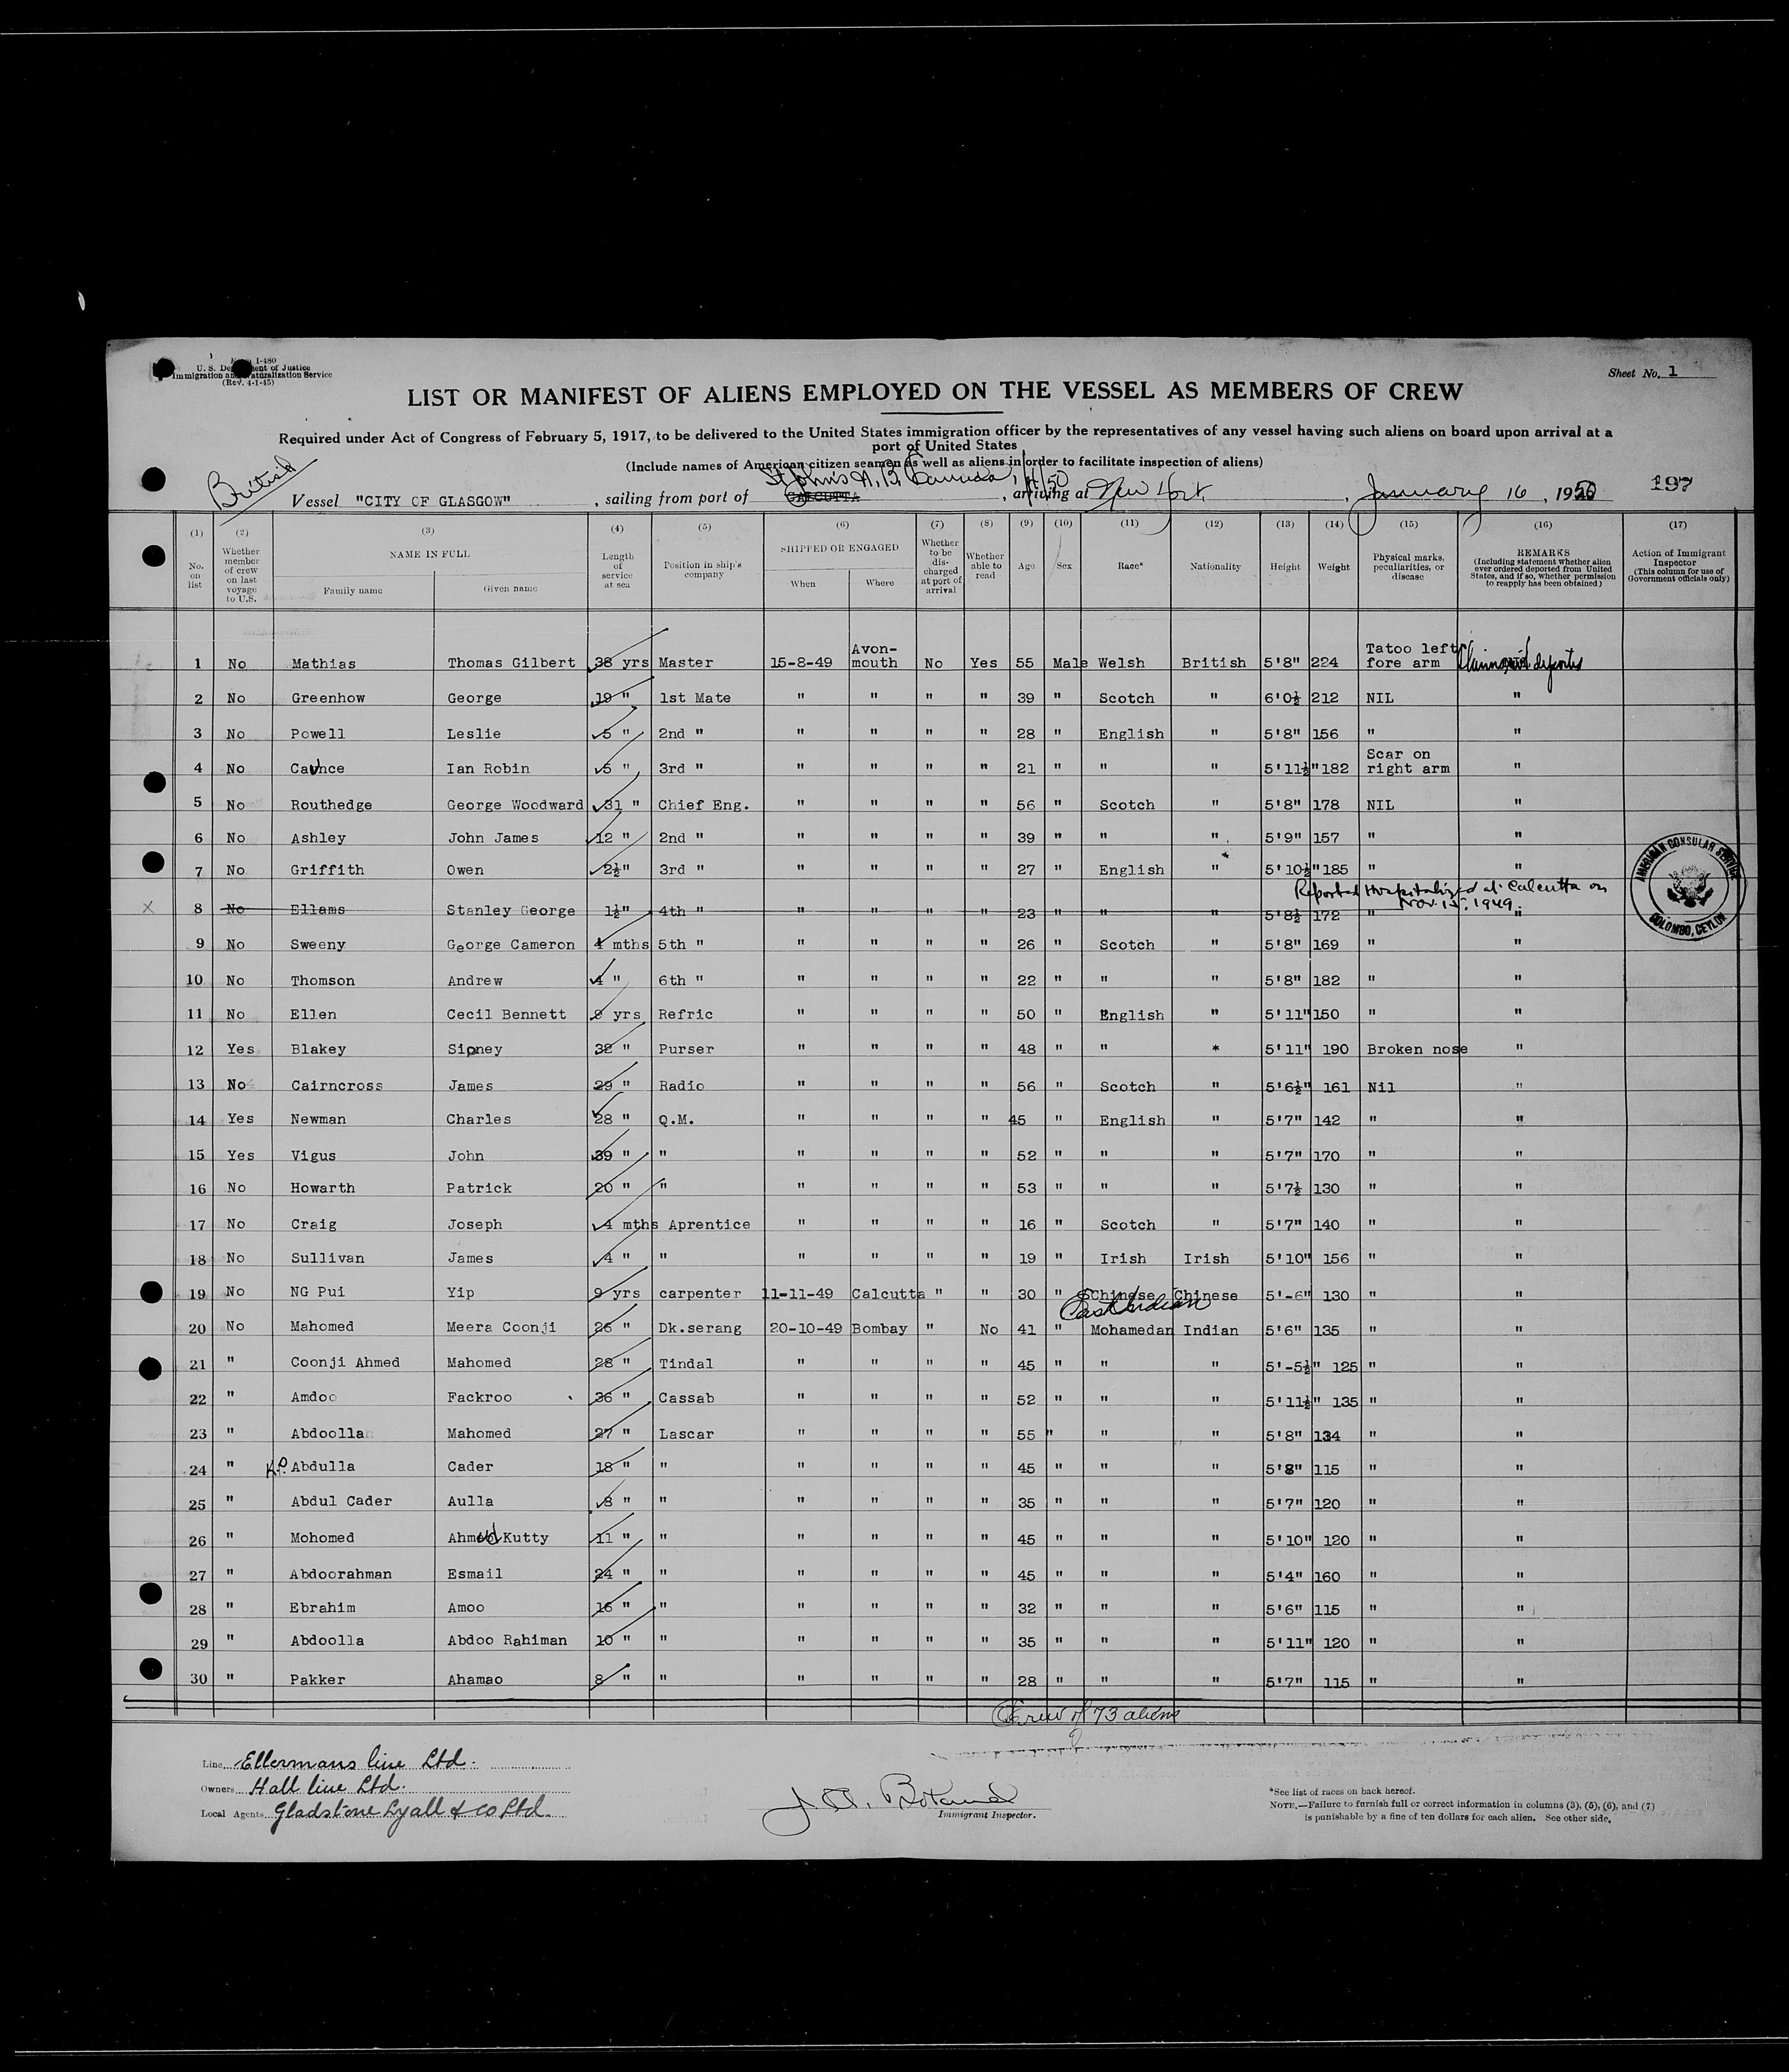 Form I-480
U. S. Department of Justice
Immigration and Naturalization Service
(Rev. 4-1-45)
Sheet No. 1
LIST OR MANIFEST OF ALIENS EMPLOYED ON THE VESSEL AS MEMBERS OF CREW
Required under Act of Congress of February 5, 1917, to be delivered to the United States immigration officer by the representatives of any vessel having such aliens on board upon arrival at a
port of United States
(Include names of American citizen seamen as well as aliens in order to facilitate inspection of aliens)
British
St John's N.B. Canada, 1/11/50
Vessel "CITY OF GLASGOW" , sailing from port of CALCUTTA , arriving at New York , January 16 , 1950 197
(1) (2) (3) (4) (5) (6) (7) (8) (9) (10) (11) (12) (13) (14) (15) (16) (17)
No. on list Whether member of crew on last voyage to U.S. NAME IN FULL Family name Given name Length of service at sea Position in ship's company SHIPPED OR ENGAGED When Where Whether to be discharged at port of arrival Whether able to read Age Sex Race* Nationality Height Weight Physical marks, peculiarities, or disease REMARKS (Including statement whether alien ever ordered deported from United States, and if so, whether permission to reapply has been obtained) Action of Immigrant Inspector (This column for use of Government officials only)
1 No Mathias Thomas Gilbert 38 yrs Master 15-8-49 Avon-mouth No Yes 55 Male Welsh British 5'8" 224 Tatoo left fore arm
2 No Greenhow George 19 " 1st Mate " " " " 39 " Scotch " 6'0½ 212 NIL "
3 No Powell Leslie 5 " 2nd " " " " " 28 " English " 5'8" 156 " "
4 No Caunce Ian Robin 5 " 3rd " " " " " 21 " " " 5'11½" 182 Scar on right arm "
5 No Routhedge George Woodward 31 " Chief Eng. " " " " 56 " Scotch " 5'8" 178 NIL "
6 No Ashley John James 12 " 2nd " " " " " 39 " " " 5'9" 157 " "
7 No Griffith Owen 2½" 3rd " " " " " 27 " English " 5'10½" 185 " "
Reported Hospitalized at Calcutta on Nov. 15, 1949.
8 No Ellams Stanley George 1½" 4th " " " " " 23 " " " 5'8½ 172 " "
9 No Sweeny George Cameron 4 mths 5th " " " " " 26 " Scotch " 5'8" 169 " "
10 No Thomson Andrew 4 " 6th " " " " " 22 " " " 5'8" 182 " "
11 No Ellen Cecil Bennett 9 yrs Refric " " " " 50 " English " 5'11" 150 " "
12 Yes Blakey Sipney 32 " Purser " " " " 48 " " * 5'11" 190 Broken nose "
13 No Cairncross James 29 " Radio " " " " 56 " Scotch " 5'6½" 161 Nil "
14 Yes Newman Charles 28 " Q.M. " " " " 45 " English " 5'7" 142 " "
15 Yes Vigus John 39 " " " " " " 52 " " " 5'7" 170 " "
16 No Howarth Patrick 20 " " " " " " 53 " " " 5'7½ 130 " "
17 No Craig Joseph 4 mths Aprentice " " " " 16 " Scotch " 5'7" 140 " "
18 No Sullivan James 4 " " " " " " 19 " Irish Irish 5'10" 156 " "
19 No NG Pui Yip 9 yrs carpenter 11-11-49 Calcutta " " 30 " Chinese Chinese 5'-6" 130 " "
East Indian
20 No Mahomed Meera Coonji 26 " Dk.serang 20-10-49 Bombay " No 41 " Mohamedan Indian 5'6" 135 " "
21 " Coonji Ahmed Mahomed 28 " Tindal " " " " 45 " " " 5'-5½" 125 " "
22 " Amdoo Fackroo 36 " Cassab " " " " 52 " " " 5'11½" 135 " "
23 " Abdoolla Mahomed 27 " Lascar " " " " 55 " " " 5'8" 134 " "
24 " K.P. Abdulla Cader 18 " " " " " " 45 " " " 5'8" 115 " "
25 " Abdul Cader Aulla 8 " " " " " " 35 " " " 5'7" 120 " "
26 " Mohomed Ahmed Kutty 11 " " " " " " 45 " " " 5'10" 120 " "
27 " Abdoorahman Esmail 24 " " " " " " 45 " " " 5'4" 160 " "
28 " Ebrahim Amoo 16 " " " " " " 32 " " " 5'6" 115 " "
29 " Abdoolla Abdoo Rahiman 10 " " " " " " 35 " " " 5'11" 120 " "
30 " Pakker Ahamao 8 " " " " " " 28 " " " 5'7" 115 " "
AMERICAN CONSULAR SERVICE
COLOMBO, CEYLON
Crew of 73 aliens
Line Ellermans line Ltd.
Owners Hall line Ltd.
Local Agents Gladstone Lyall & Co Ltd.
Immigrant Inspector.
*See list of races on back hereof.
NOTE.—Failure to furnish full or correct information in columns (3), (5), (6), and (7)
is punishable by a fine of ten dollars for each alien. See other side.